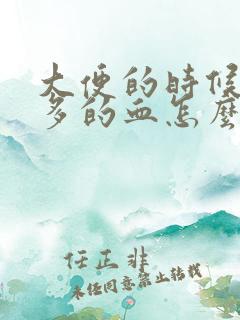 大便的时候
多的血怎麽
任正非
未经同意禁止转载